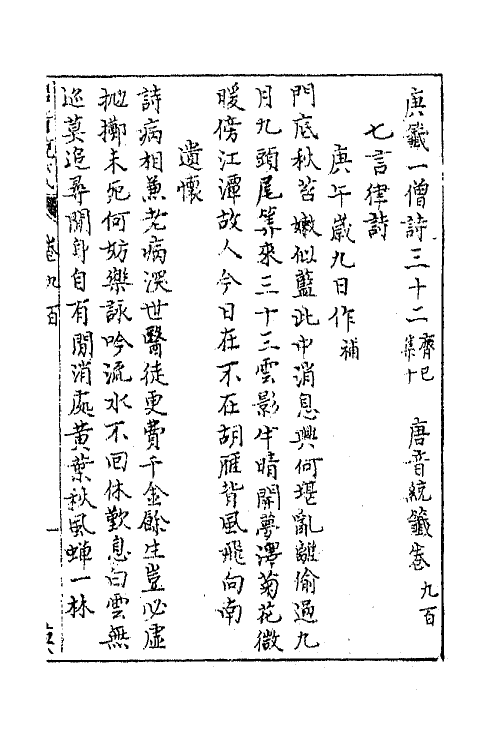 庚籤一僧詩三十二 齊已集十 唐音統籤卷九百
七言律詩
庚午歲九日作 補
門底秋苔嫩似藍此中消息興何堪亂離偷過九
月九頭尾筭來三十三雲影半晴開夢澤菊花微
暖傍江潭故人今日在不在胡雁背風飛向南
遣懷
詩病相兼老病深世醫徒更費千金餘生豈必虛
拋擲未死何妨樂詠吟流水不回休歎息白雲無
迹莫追尋閒身自有閒消處黃葉秋風蟬一林
卷九百
一